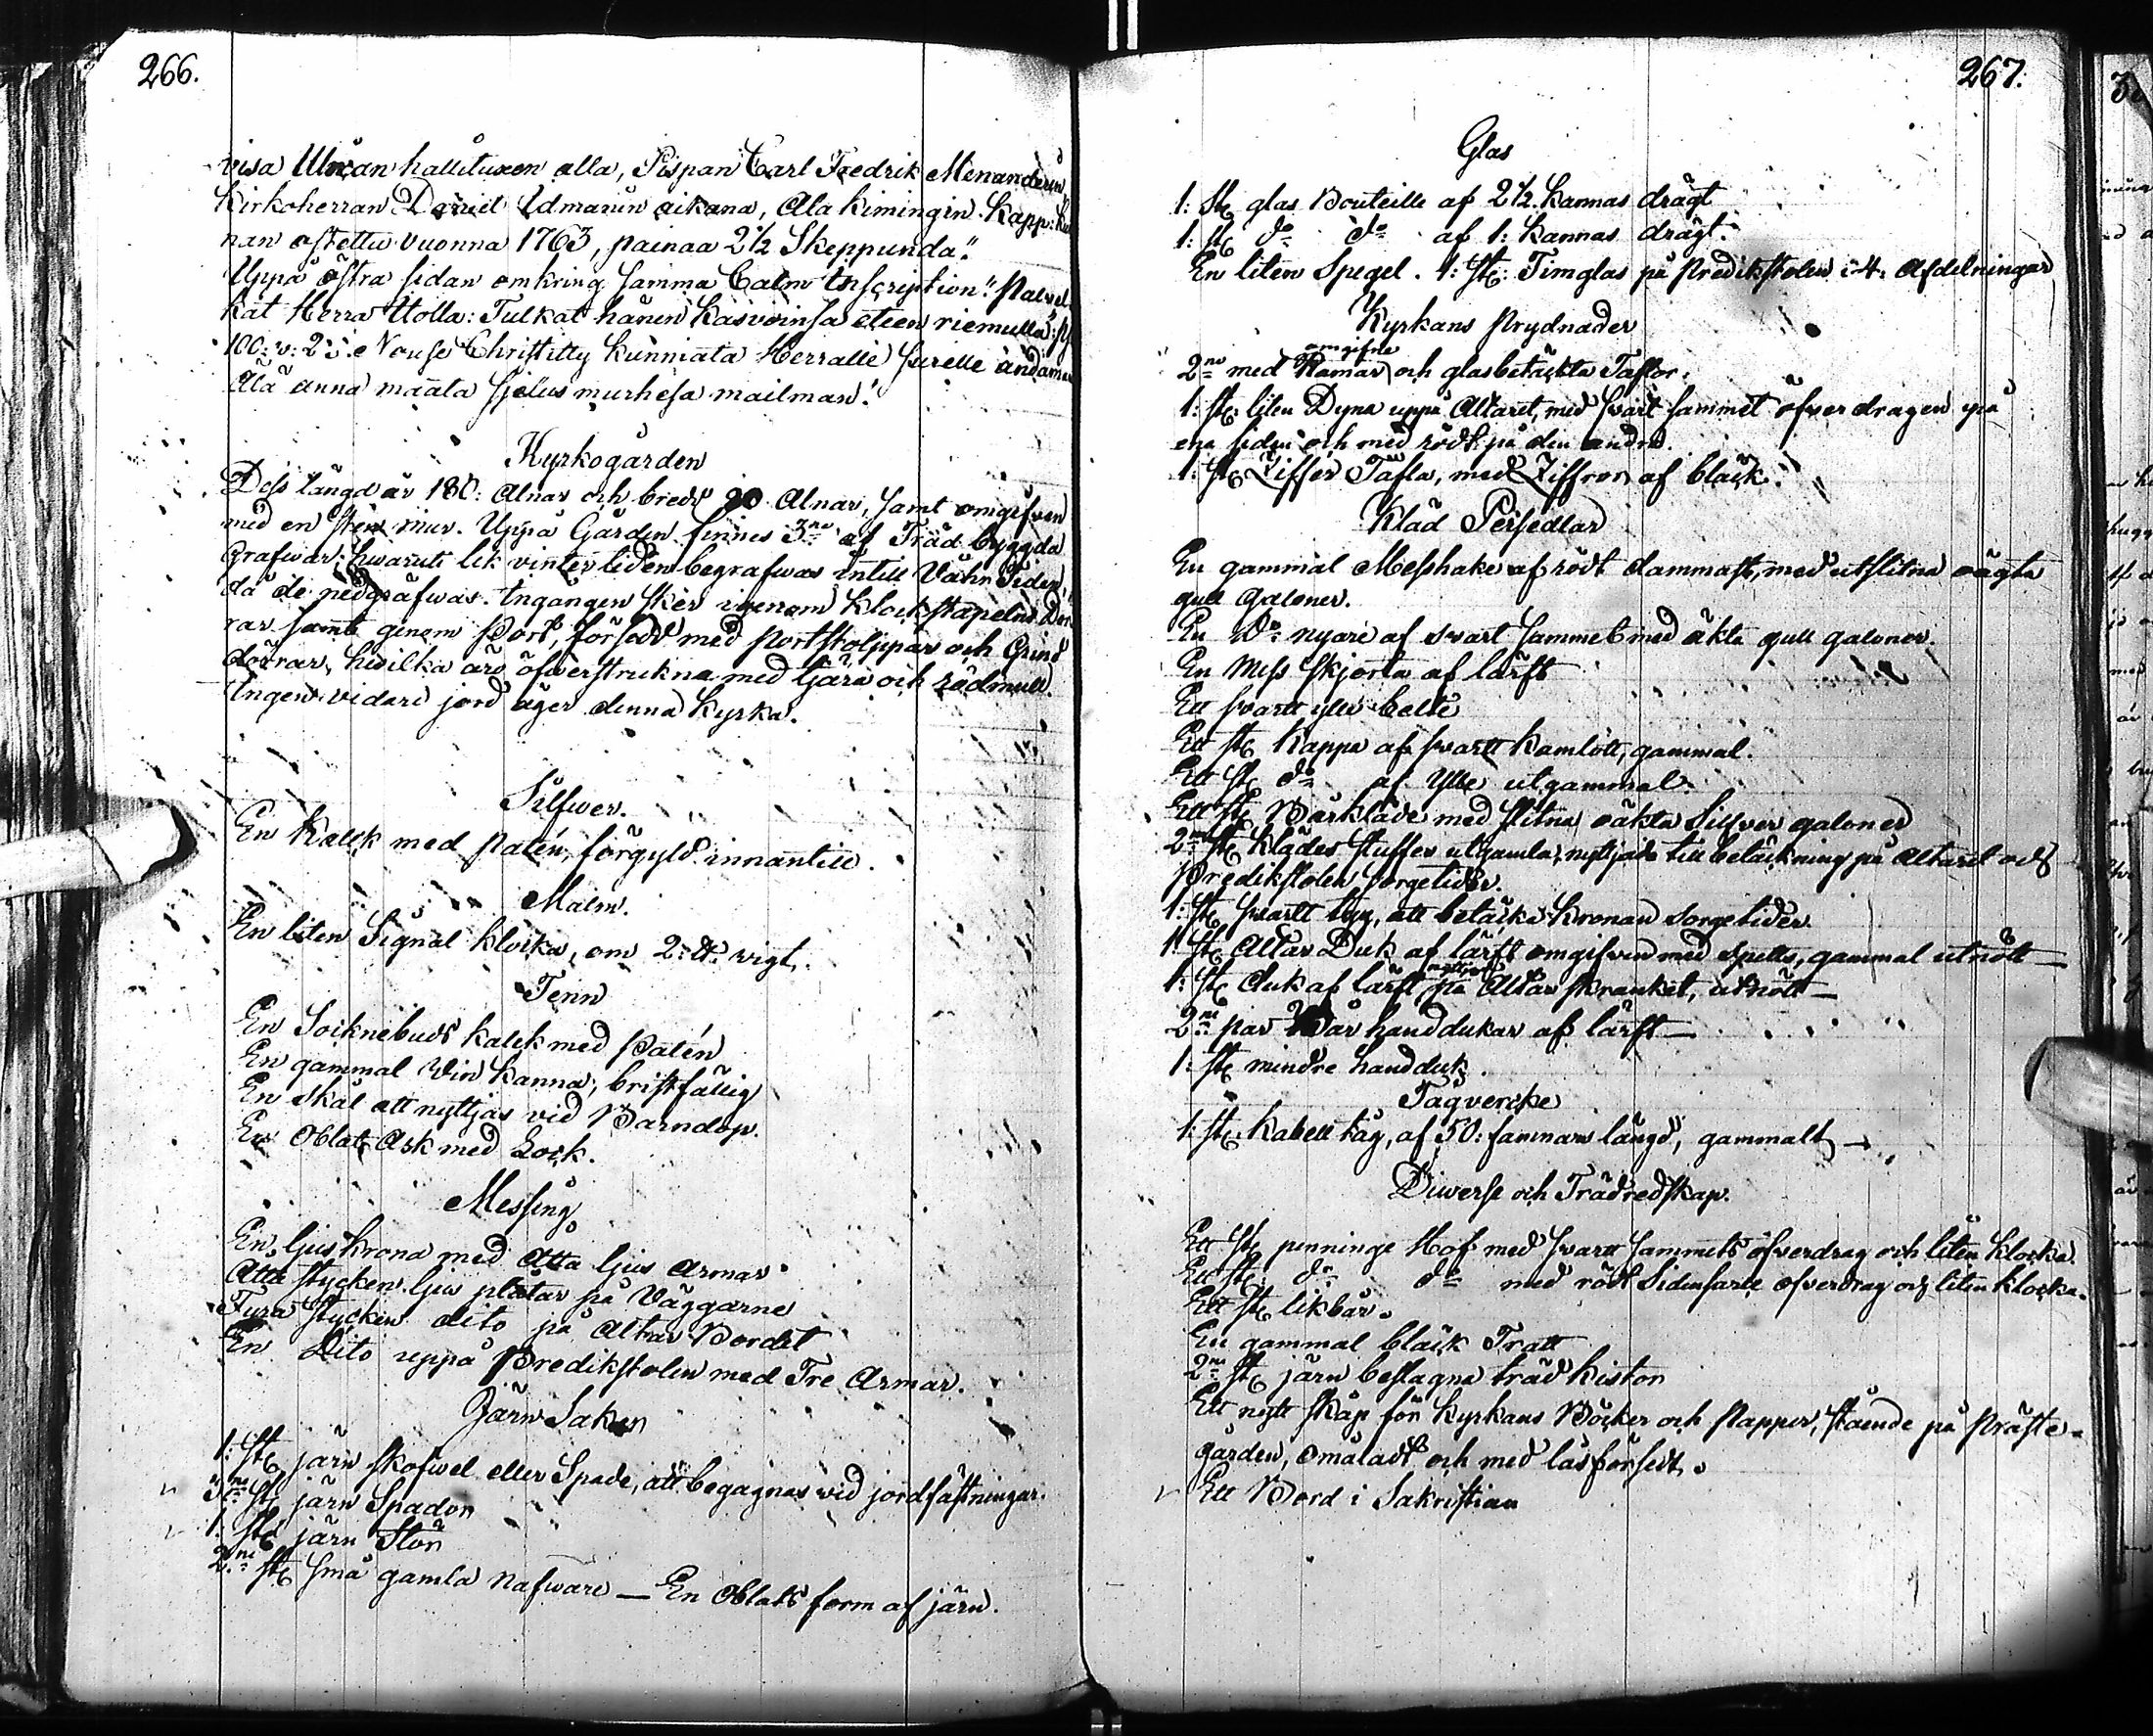 266.
visa Ulrican hallituxen alla, Pispan Carl Fredrik Menanderin
Kirkoherran Daniel Idmanin aikana, Ala Kimingin Kapp:
nan astettu vuonna 1763, painaa 2½ Skeppunda".
Uppå östra sidan omkring samma Calm Inscription: "Palvel
kat Herra Ilolla: Tulkat hänen Kasvoinsa eteen riemulla": ps
100: v: 2: Nouse Christitty kunniata Herralle suurelle andaman
Älä anna määtä sielus murhesa mailman!
Kyrkogården
Dess längd är 180: Alnar och bredd 90 Alnar, samt omgifven
med en sten mur. Uppå Gården finnes 3ne af Träd byggda
Grafwar, hwaruti lik vintertiden begrafwas intill Vårtiden,
då de nedgräfwas. Ingången sker igenom Klockstapelns Dör
rar samt genom Port, försedd med portstolppar och Grind
dörrar, hwilka äro öfwerstrukna med tjära och rödmull.
Ingen vidare jord äger denna Kyrka.
Silfwer.
En Kalk med Patén, förgyld innantill.
Malm.
En liten Signal klocka, om 2: ℔ vigt.
Tenn
En Socknebuds kalck med Patén
En gammal Vin kanna, bristfällig
En skål att nyttjas vid Barndop.
En Oblat Ask med Lock.
Messing
En ljuskrona med Åtta ljus Armar
Åtta stycken ljus plåtar på Väggarne
Fyra stycken dito på Altar Bordet
En Dito uppå Predikstolen med Tre Armar.
Järn Saker
1: st: järn skofwel eller Spade, att begagnas vid jordfästningar.
3ne st: järn Spador
1 st: järn Stör
2ne st: små gamla Nafware — En Oblats form af järn.
267.
Glas
1: st: glas Bouteille af 2½ Kannas drägt
1: st: do do af 1: Kannas drägt.
En liten Spegel. 1: st: Timglas på Predikstolen i 4: Afdelningar
Kyrkans Prydnader
omgifne
2ne med Ramar och glasbetäckta Taflor.
1: st: liten Dyna uppå Altaret, med svart sammet öfverdragen på
ena sidan och med rödt på den andra.
1: st: Ziffer Tafla, med Ziffror af bläck.
Kläd Persedlar
En gammal Messhake af rödt dammast, med utslitna oägta
gull Galoner.
En do nyare af svart sammet med äkta gull galoner.
En Mess skjorta af lärft
Ett svart ylle bälte
Ett st: Kappa af svartt Kamlott, gammal.
Ett st: do af Ylle utgammal.
Ett st: Bårkläde med slitna oäkta Silfver galoner
2ne st: Klädes stuffer utgamla, nyttjade till betäckning på Altaret och
Predikstolen sorgetider.
1: st: svartt tyg, att betäcka Kronan sorgetider.
1: st: Altar Duk af lärft omgifven med spetts, gammal utnött —
1: st: duk af lärft på Altar skranket, utnött —
2ne par Bår handdukar af lärft —
1: st: mindre handduk.
Tågvercke
1: st: Kabell tåg, af 50: famnars längd, gammalt —
Diwerse och Trädredskap.
Ett st: penninge Hof med svart sammets öfverdrag och liten klocka.
Ett st: do do med rödt Sidensarts öfverdrag och liten klocka.
Ett st: likbår.
En gammal bläck Tratt
2ne st: järn beslagna träd Kistor
Ett nytt skåp för Kyrkans Böcker och Papper, stående på Präste-
gården, omåladt och med lås försedt.
Ett Bord i Sakristian